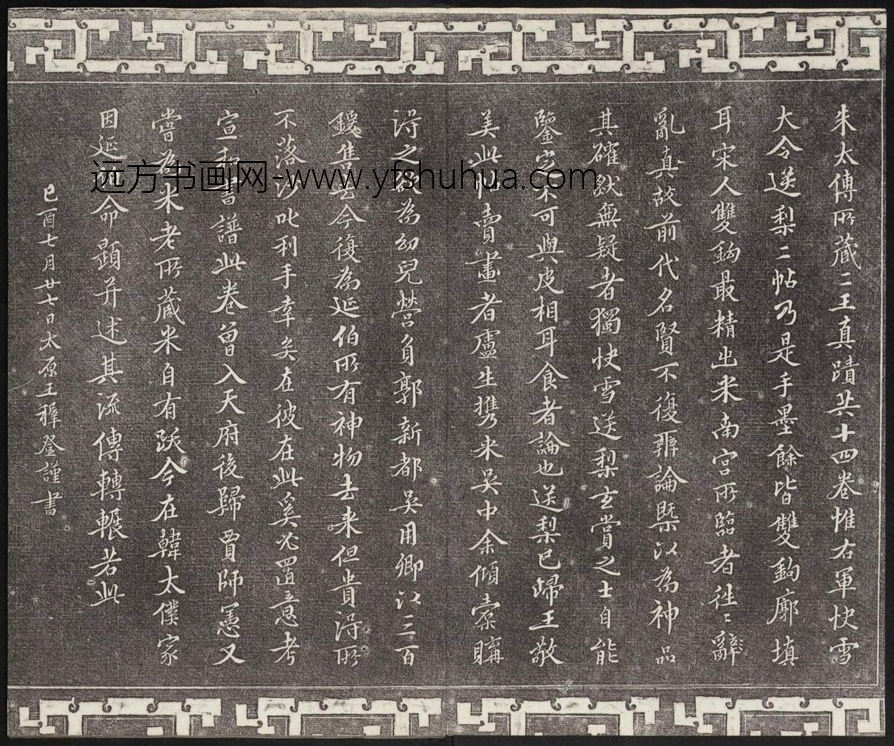 朱太傅所藏二王真蹟共十四卷惟右軍快雪
大令送梨二帖乃是手墨餘皆雙鉤廓填
耳宋人雙鉤最精出米南宮所臨者往〻辭
亂真故前代名賢不復辨論槩以為神品
其確然無疑者獨快雪送梨玄賞之士自能
鑒定未可與皮相耳食者論也送梨已歸王敬
美此以賣畫者盧生携來吳中余傾橐購
得之後為幼兒營負郭新都吳用卿以三百
鍰售去今復為延伯所有神物去來但貴得所
不落沙叱利手幸矣在彼在此奚必置意考
宣和書譜此卷曾入天府後歸賈師憲又
嘗為米老所藏米自有跋今在韓太僕家
因延伯命題并述其流傳轉輾若此
己酉七月廿七日太原王穉登謹書
远方书画网-www.yfshuhua.com